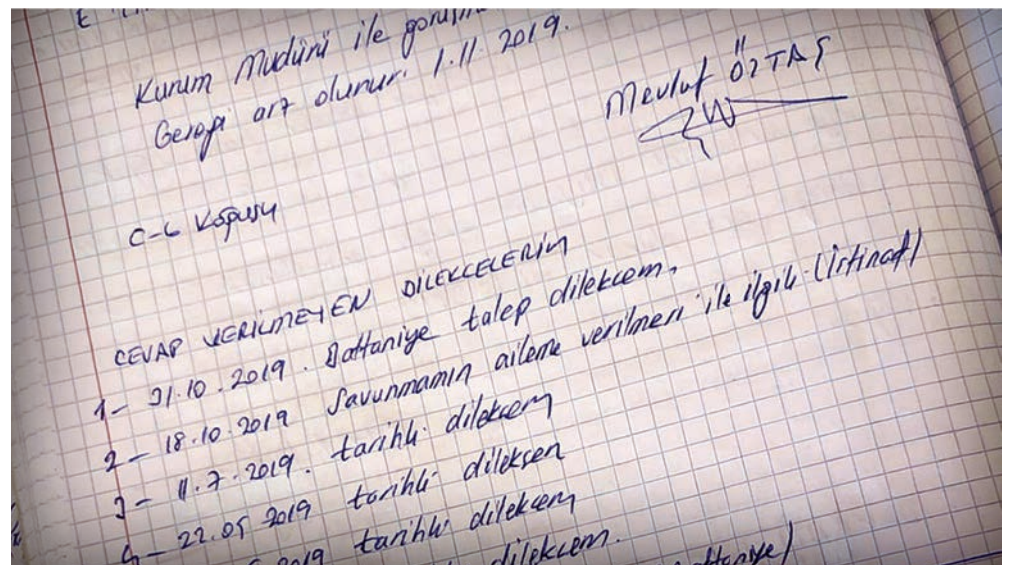 Kurum Müdürü ile
Gereği arz olunur. 1.11.2019.
Mevlüt ÖZTAŞ
C-6 Koğuşu
CEVAP VERİLMEYEN DİLEKÇELERİM
1- 31.10.2019. Battaniye talep dilekçem.
2- 18.10.2019 Savunmamın aileme verilmesi ile ilgili (İstinaf)
3- 11.7.2019. tarihli dilekçem
4- 22.05 2019 tarihli dilekçem
2019 tarihli dilekçem
dilekçem.